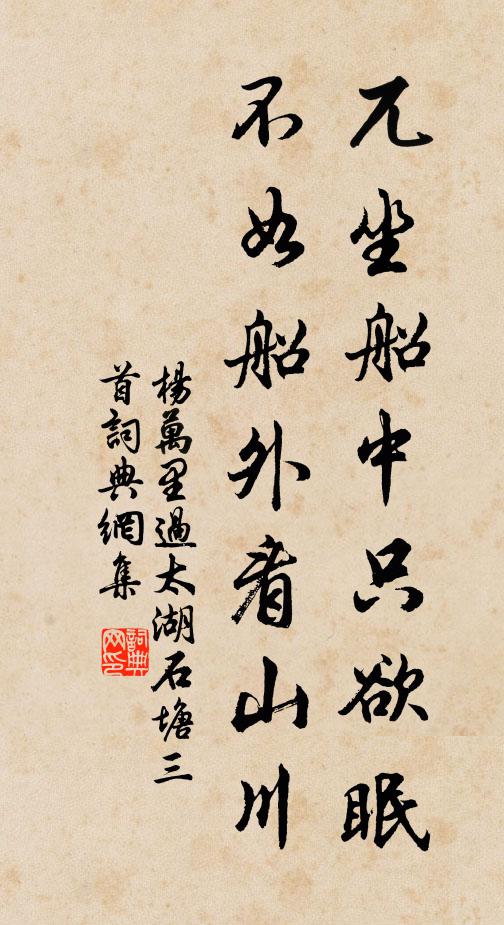 兀坐船中只欲眠
不如船外看山川
楊萬里過太湖石塘三
首詞典網集
詞典
网印